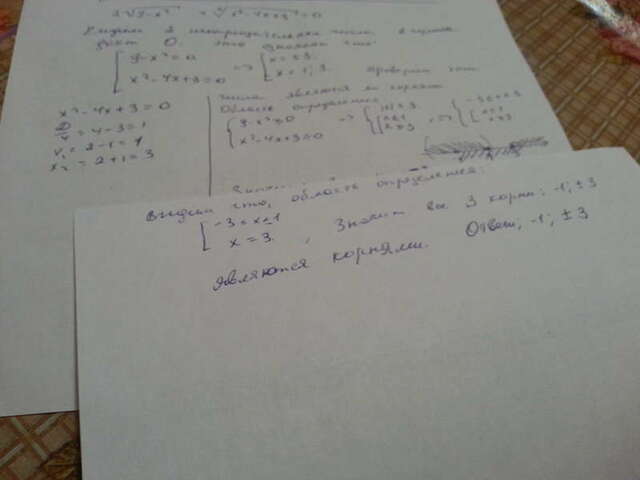 3√9-x² = √x²-4x+3 = 0
Видим 2 неотрицательных числа в сумме
дают 0. Это означает что
[ 9-x²=0 => [ x=±3
x²-4x+3=0 x=1;3. Проверим
x²-4x+3=0
D/4=4-3=1
x₁=2-1=1
x₂=2+1=3
числа являются ли
Область определения:
{ 9-x²≥0 => { |x|≤3 => { -3≤x≤3
x²-4x+3≥0 [ x≤1 x≥3 [ x≤1 x≥3
видим что, область определения:
[ -3≤x≤1
x=3. , Значит все 3 корни: -1; ±3
являются корнями. Ответ: -1; ±3